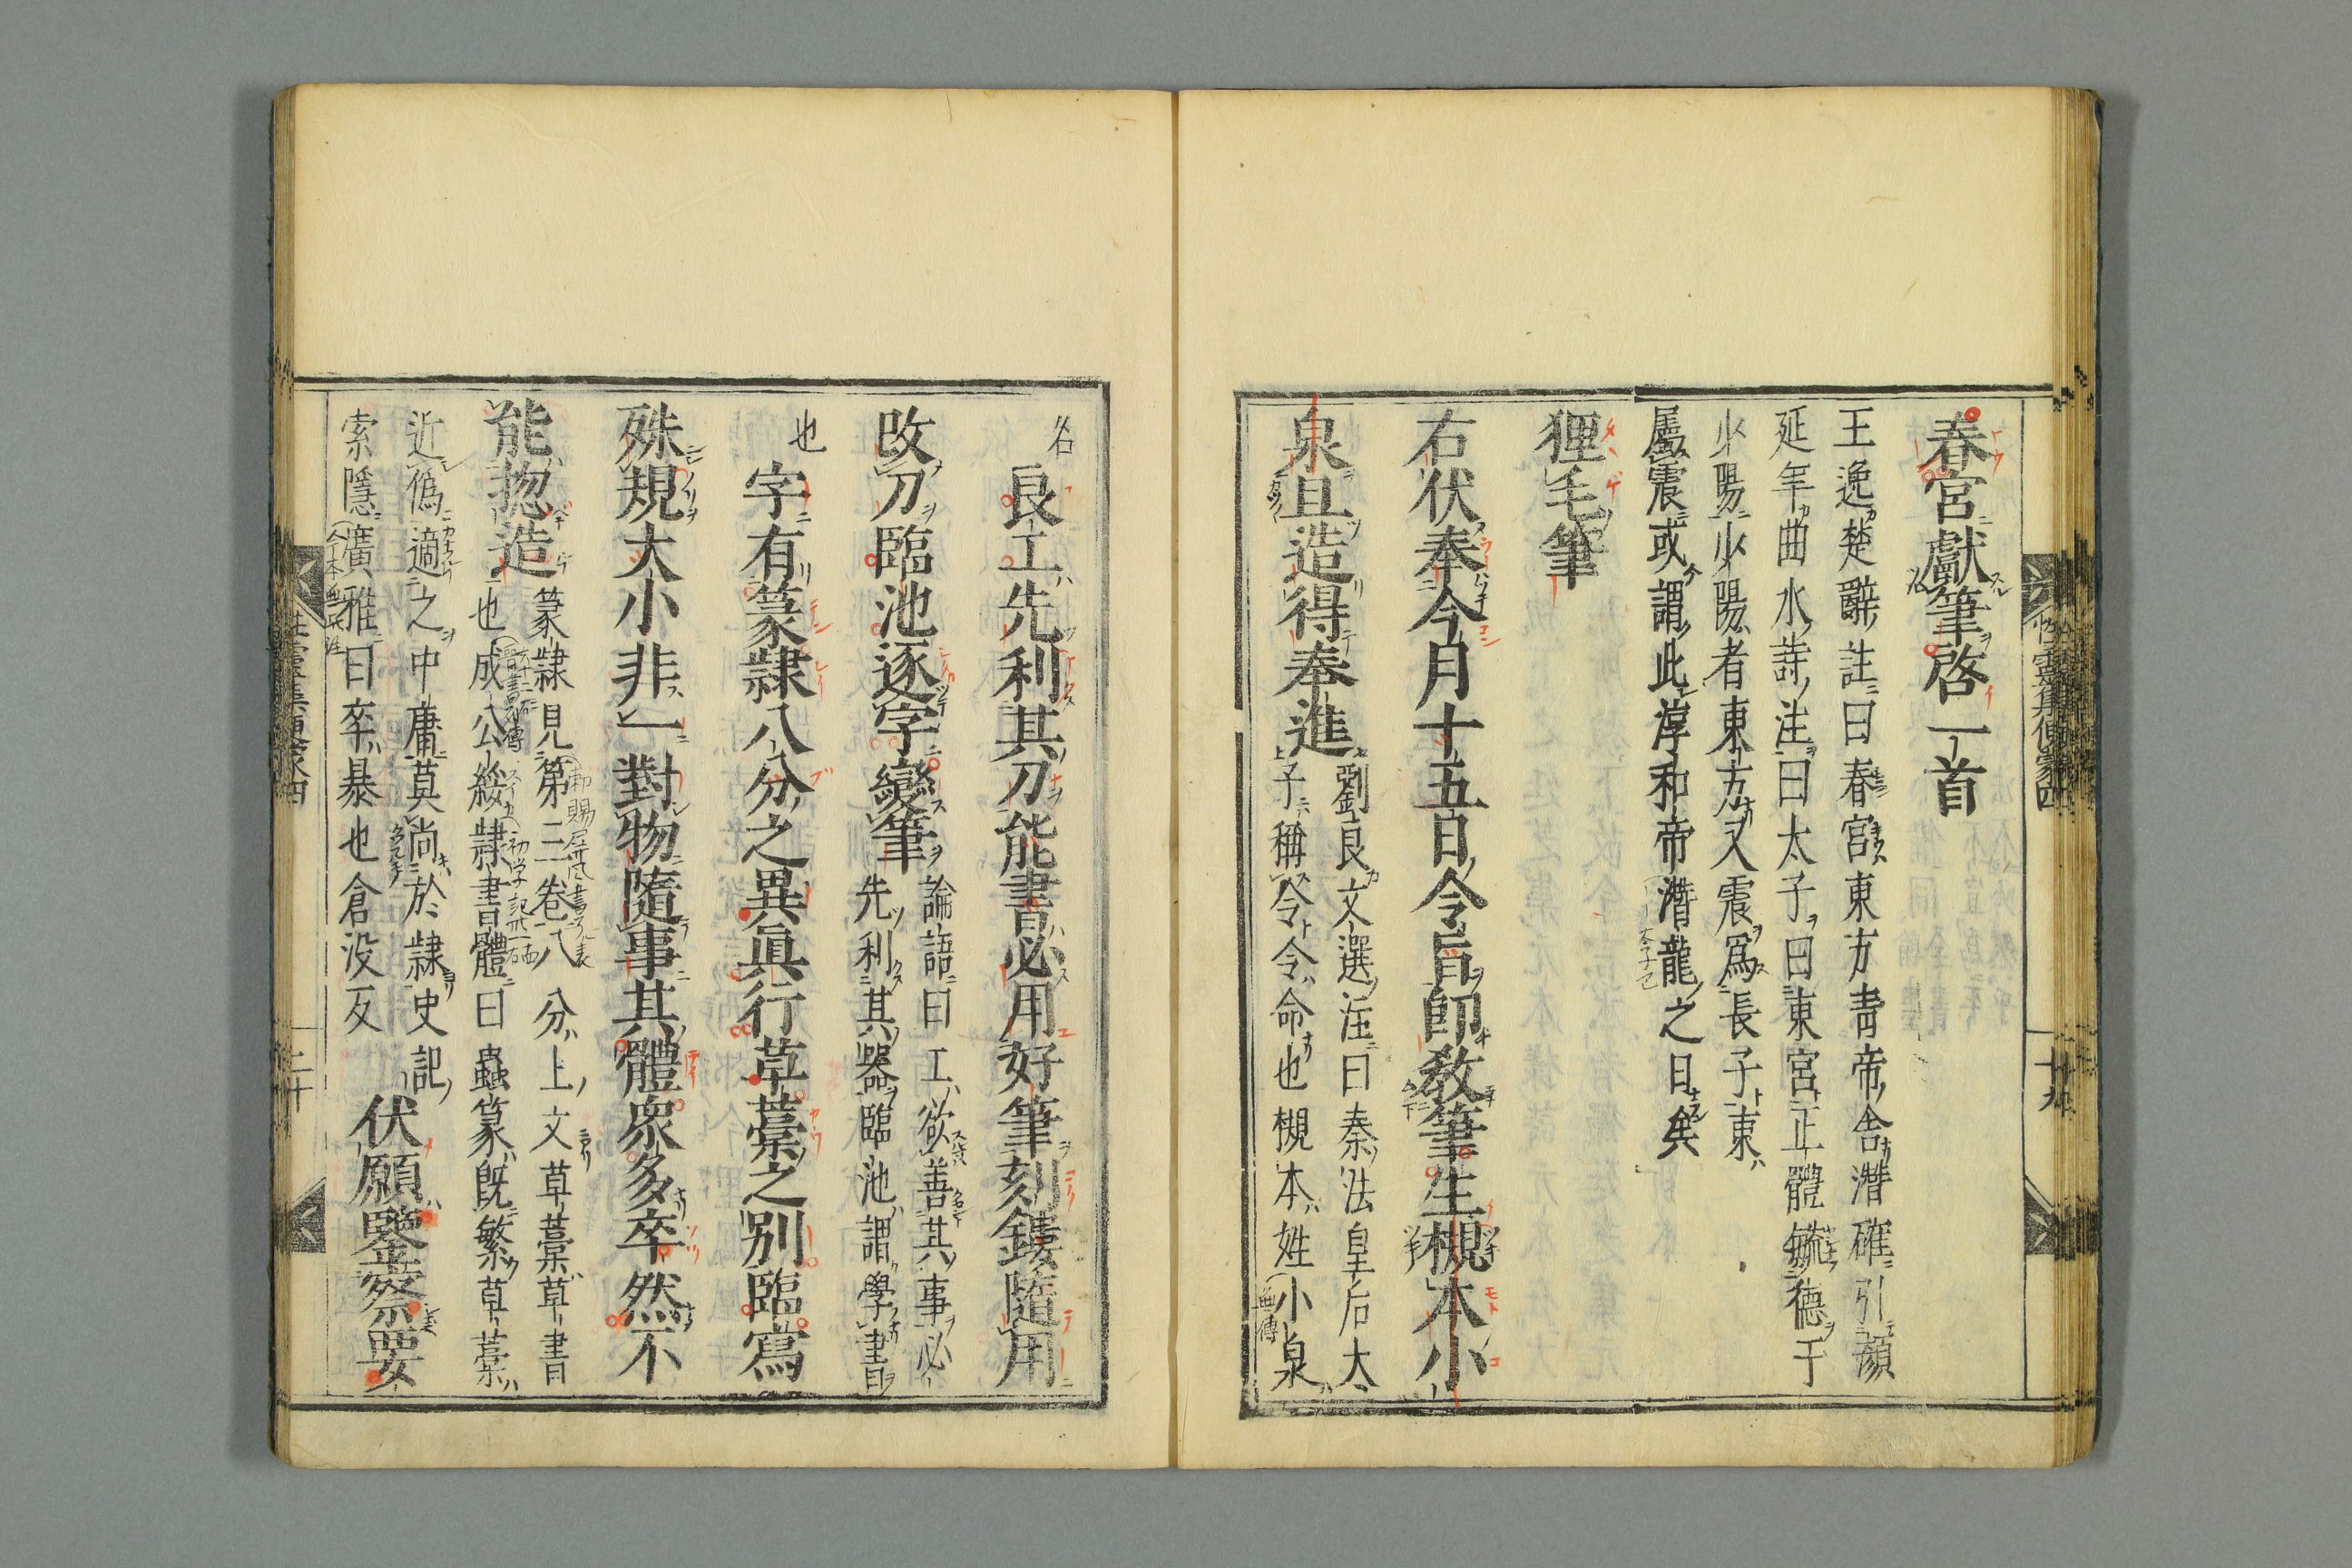 春宮獻筆啓一首
王逸楚辭註曰春宮東方青帝舎潛確引顔
延年曲水詩注曰太子曰東宮正體毓德于
少陽少陽者東方又震爲長子東
屬震或謂此淳和帝潛龍之日矣
狸毛筆
右伏奉今月十五日令旨卽教筆生槻本小
泉且造得奉進
劉良文選注曰秦法皇后太
子稱令令命也槻本姓小泉
名
良工先利其刀能書必用好筆刻鏤隨用
改刀臨池逐字變筆
論語曰工欲善其事必
先利其器臨池謂學書
也
字有篆隷八分之異眞行草藁之別臨寫
殊規大小非一對物隨事其體衆多卒然不
能揔造
篆隷見第三卷八分上文草藁草書
也成公綏隷書體曰蟲篆旣繁草藁
近僞適之中庸莫尚於隷史記
索隱廣雅曰卒暴也倉没反
伏願鑒察要